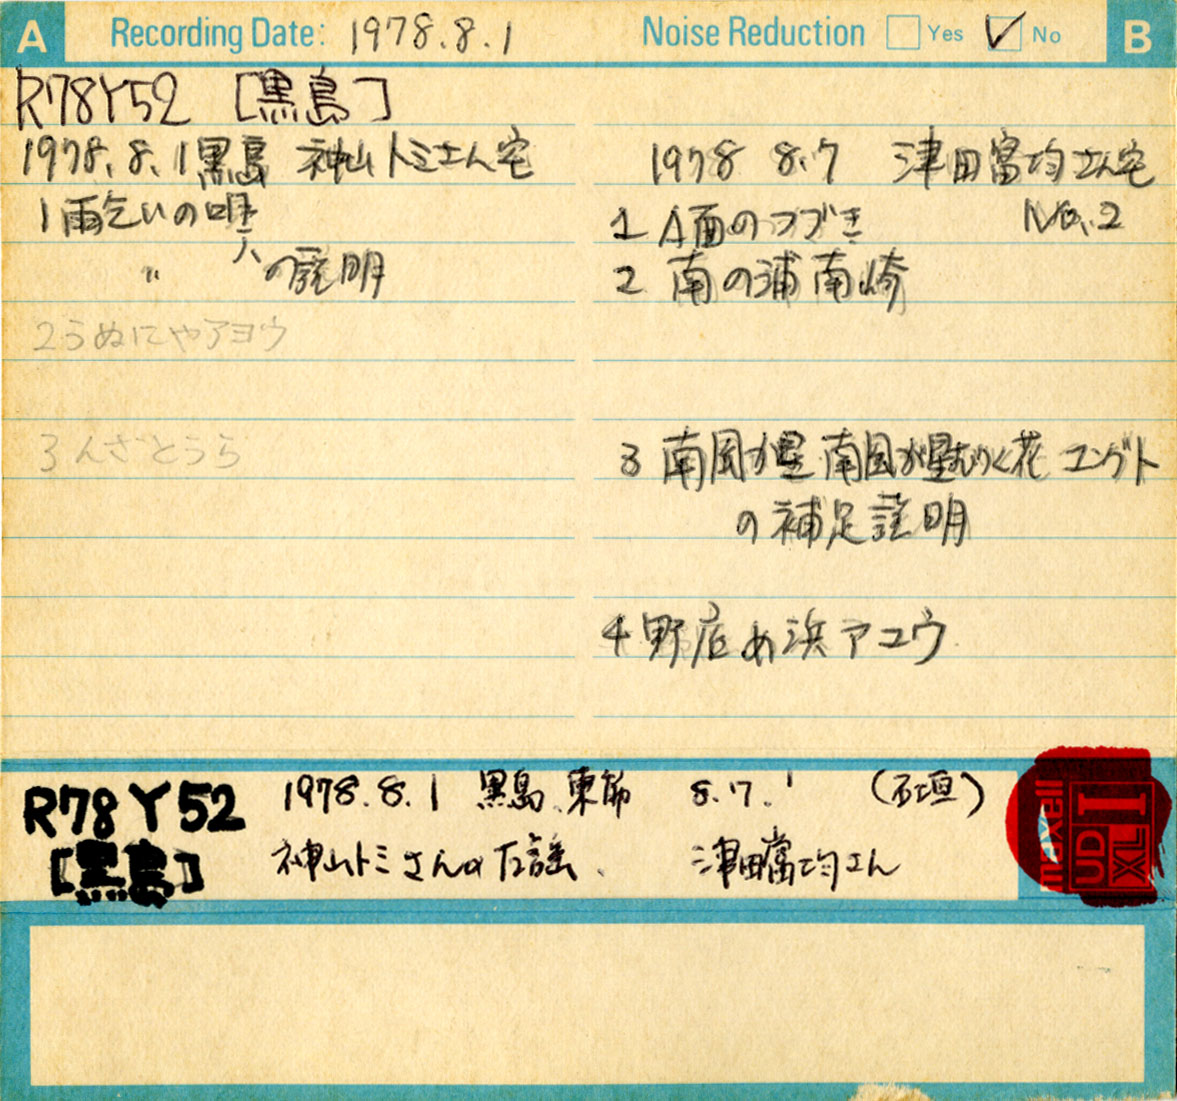 A Recording Date: 1978.8.1 Noise Reduction Yes No B
R78Y52 [黒島]
1978.8.1 黒島 神山トミさん宅
1 雨乞いの唄
〃 の説明
2 うぬにやアヨウ
3 んざとうら
1978 8.7 津田富均さん宅
No.2
1 A面のつづき
2 南の浦南崎
3 南風が星 南風が星むりく花 ユングト
の補足説明
4 野底め浜アユウ
R78Y52
[黒島]
1978.8.1 黒島 東筋 8.7. (石垣)
神山トミさんの 謡 津田富均さん
maxell
UD
XL I